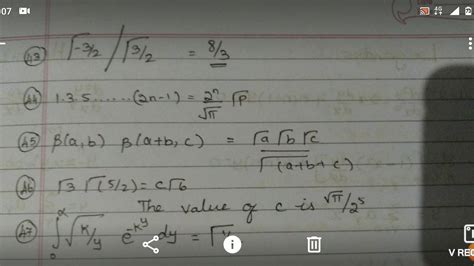 07
4G
43 Γ-3/2 / Γ3/2 = 8/3
44 1.3.5......(2n-1) = 2ⁿ/√π Γp
45 β(a,b) β(a+b,c) = Γa Γb Γc / Γ(a+b+c)
46 Γ3 Γ(5/2) = cΓ6
The value of c is √π/2⁵
47 ∫₀^∞ √k/y e^-ky dy = Γ
V REC